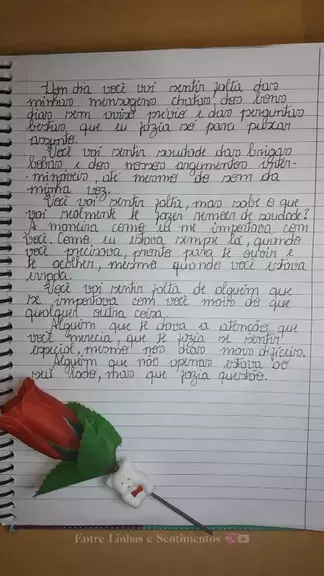 Um dia você vai sentir falta das
minhas mensagens chatas, dos bons
dias sem aviso prévio e das perguntas
bestas que eu fazia só para puxar
assunto.
Você vai sentir saudade das brigas
bobas e dos nossos argumentos inter-
mináveis, até mesmo do som da
minha voz.
Você vai sentir falta, mas sabe o que
vai realmente te fazer remoer de saudade?
A maneira como eu me importava com
você. Como eu estava sempre lá, quando
você precisava, pronto para te ouvir e
te acolher, mesmo quando você estava
errada.
Você vai sentir falta de alguém que
se importava com você mais do que
qualquer outra coisa.
Alguém que te dava a atenção que
você merecia, que te fazia se sentir
especial, mesmo nos dias mais difíceis.
Alguém que não apenas estava ao
seu lado, mas que fazia questão.
Entre Linhas e Sentimentos